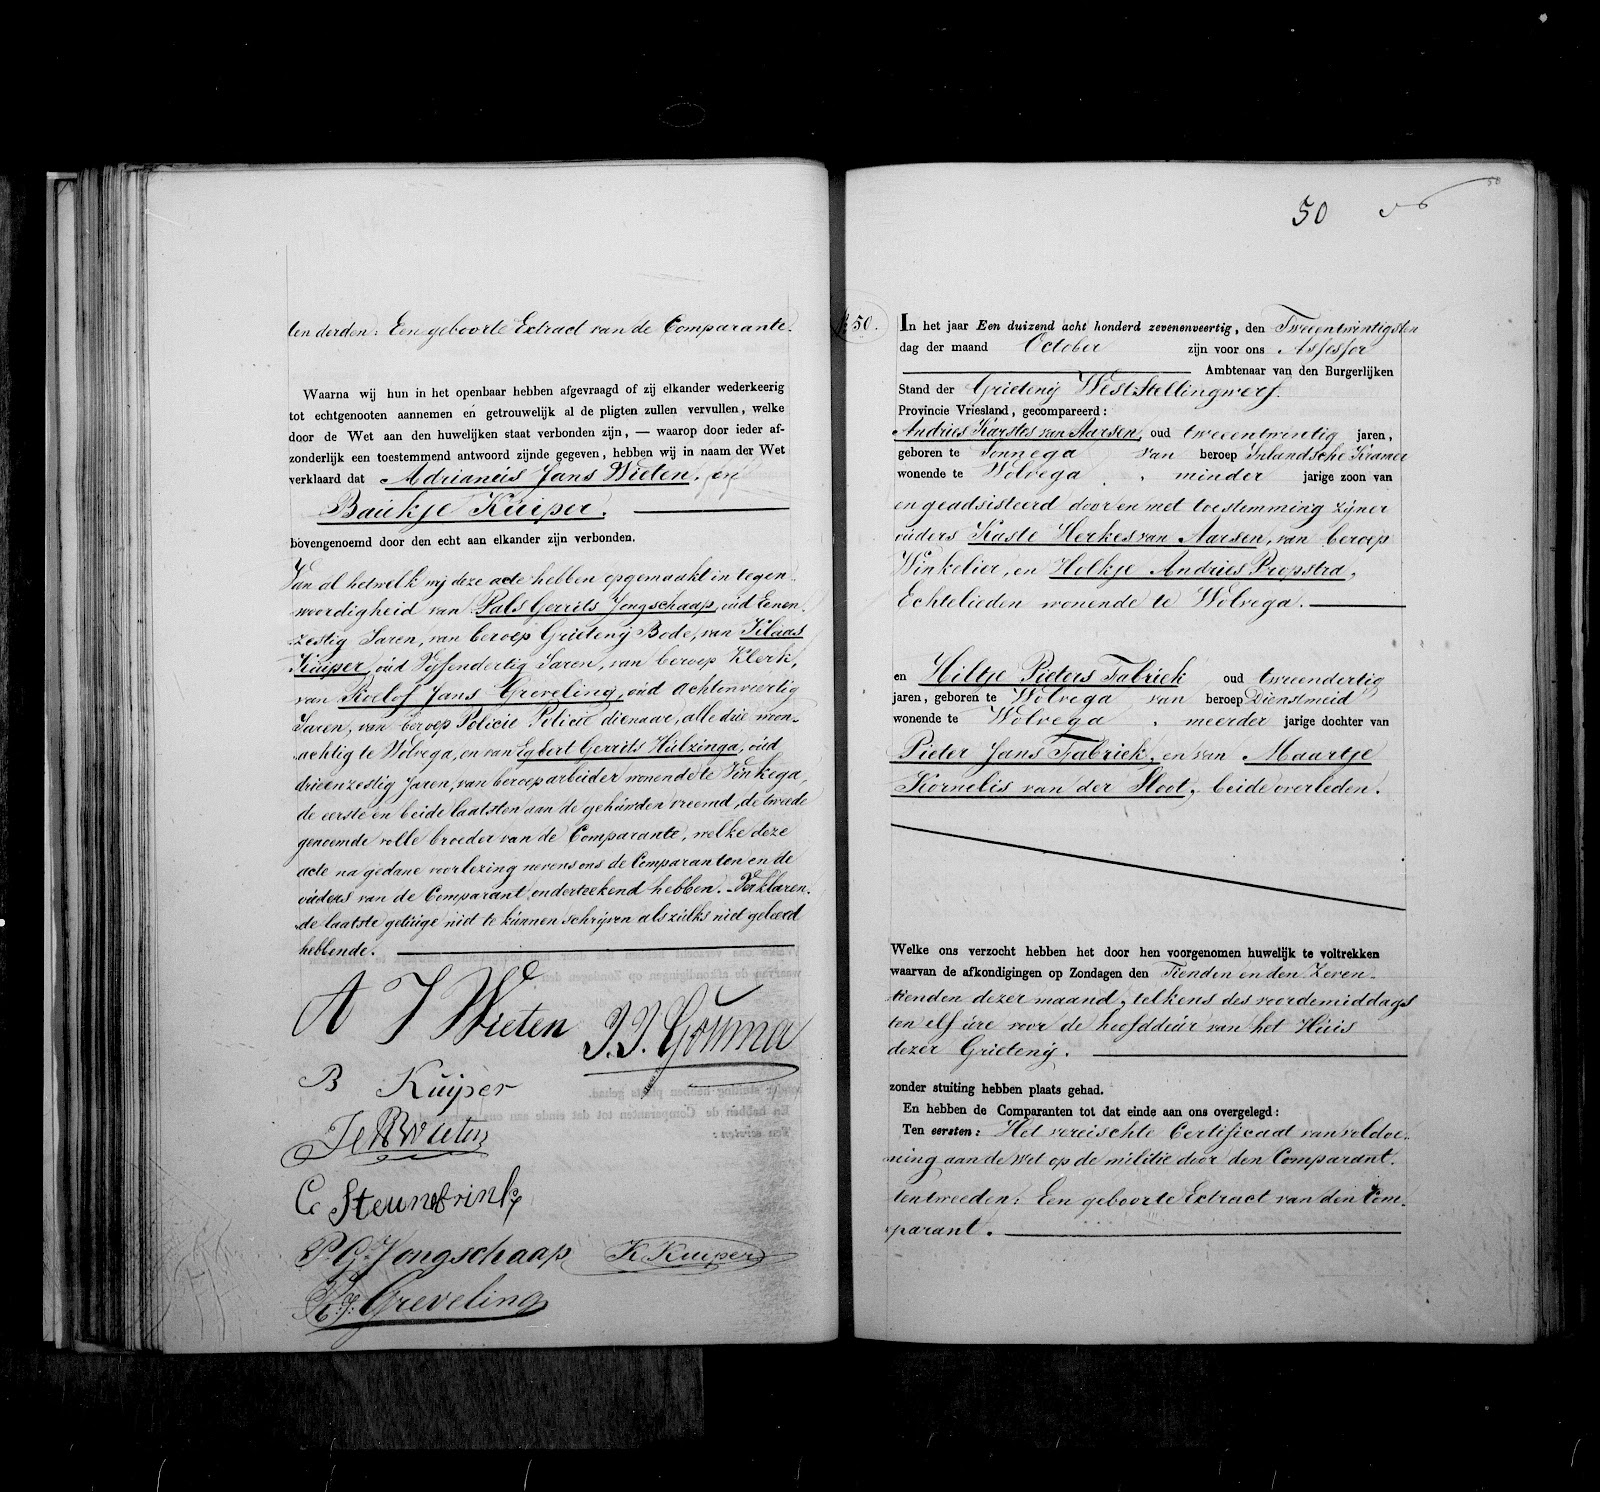 ten derden: Een geboorte Extract van de Comparante.
Waarna wij hun in het openbaar hebben afgevraagd of zij elkander wederkeerig
tot echtgenooten aannemen en getrouwelijk al de pligten zullen vervullen, welke
door de Wet aan den huwelijken staat verbonden zijn, — waarop door ieder af-
zonderlijk een toestemmend antwoord zijnde gegeven, hebben wij in naam der Wet
verklaard dat Adrianus Jans Wieten, en
Baukje Kuiper.
bovengenoemd door den echt aan elkander zijn verbonden.
Van al hetwelk wij deze acte hebben opgemaakt in tegen-
woordigheid van Pals Gerrits Jongschaap, oud Eenen-
zestig Jaren, van beroep Grietenij Bode, van Klaas
Kuiper, oud Vijfendertig Jaren, van beroep Klerk,
van Roelof Jans Greveling, oud achtenveertig
Jaren, van beroep Policie Policie dienaar, alle drie won-
achtig te Wolvega, en van Egbert Gerrits Hulzinga, oud
drieenzestig Jaren, van beroep arbeider wonende te Vinkega,
de eerste en beide laatsten aan de gehuwden vreemd, de tweede
genoemde volle broeder van de Comparante, welke deze
acte na gedane voorlezing nevens ons de Comparanten en de
ouders van de Comparant onderteekend hebben. Verklaren-
de laatste getuige niet te kunnen schrijven als zulks niet geleerd
hebbende.
A J Wieten J.J. Gouma
B Kuiper
C Steunebrink
P. G. Jongschaap K Kuiper
R. J. Greveling
50
50
N 50.
In het jaar Een duizend acht honderd zevenenveertig, den Tweeentwintigsten
dag der maand October zijn voor ons Assessor
Ambtenaar van den Burgerlijken
Stand der Grietenij WestStellingwerf.
Provincie Vriesland, gecompareerd:
Andries Karstes van Aarsen, oud tweeentwintig jaren,
geboren te Sonnega van beroep Inlandsche Kramer
wonende te Wolvega, minder jarige zoon van
en geadsisteerd door en met toestemming zijner
ouders Kaste Herkes van Aarsen, van beroep
Winkelier, en Helkje Andries Propstra,
Echtelieden wonende te Wolvega.
en Hiltje Pieters Fabriek oud tweeendertig
jaren, geboren te Wolvega van beroep Dienstmeid
wonende te Wolvega, meerder jarige dochter van
Pieter Jans Fabriek, en van Maartje
Kornelis van der Sloot, beide overleden.
Welke ons verzocht hebben het door hen voorgenomen huwelijk te voltrekken
waarvan de afkondigingen op Zondagen den Tienden en den Zeven-
tienden dezer maand, telkens des voordemiddags
ten elf ure voor de hoofddeur van het Huis
dezer Grietenij.
zonder stuiting hebben plaats gehad.
En hebben de Comparanten tot dat einde aan ons overgelegd:
Ten eersten: Het vereischte Certificaat van voldoe-
ning aan de wet op de militie door den Comparant.
ten tweeden: Een geboorte Extract van den Com-
parant.